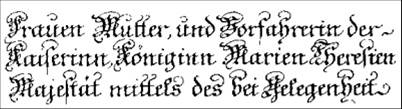 Frauen Mutter, und Vorfahrerin der-
Kaiserinn, Königinn Marien Theresien
Majestät mittels des bei Gelegenheit